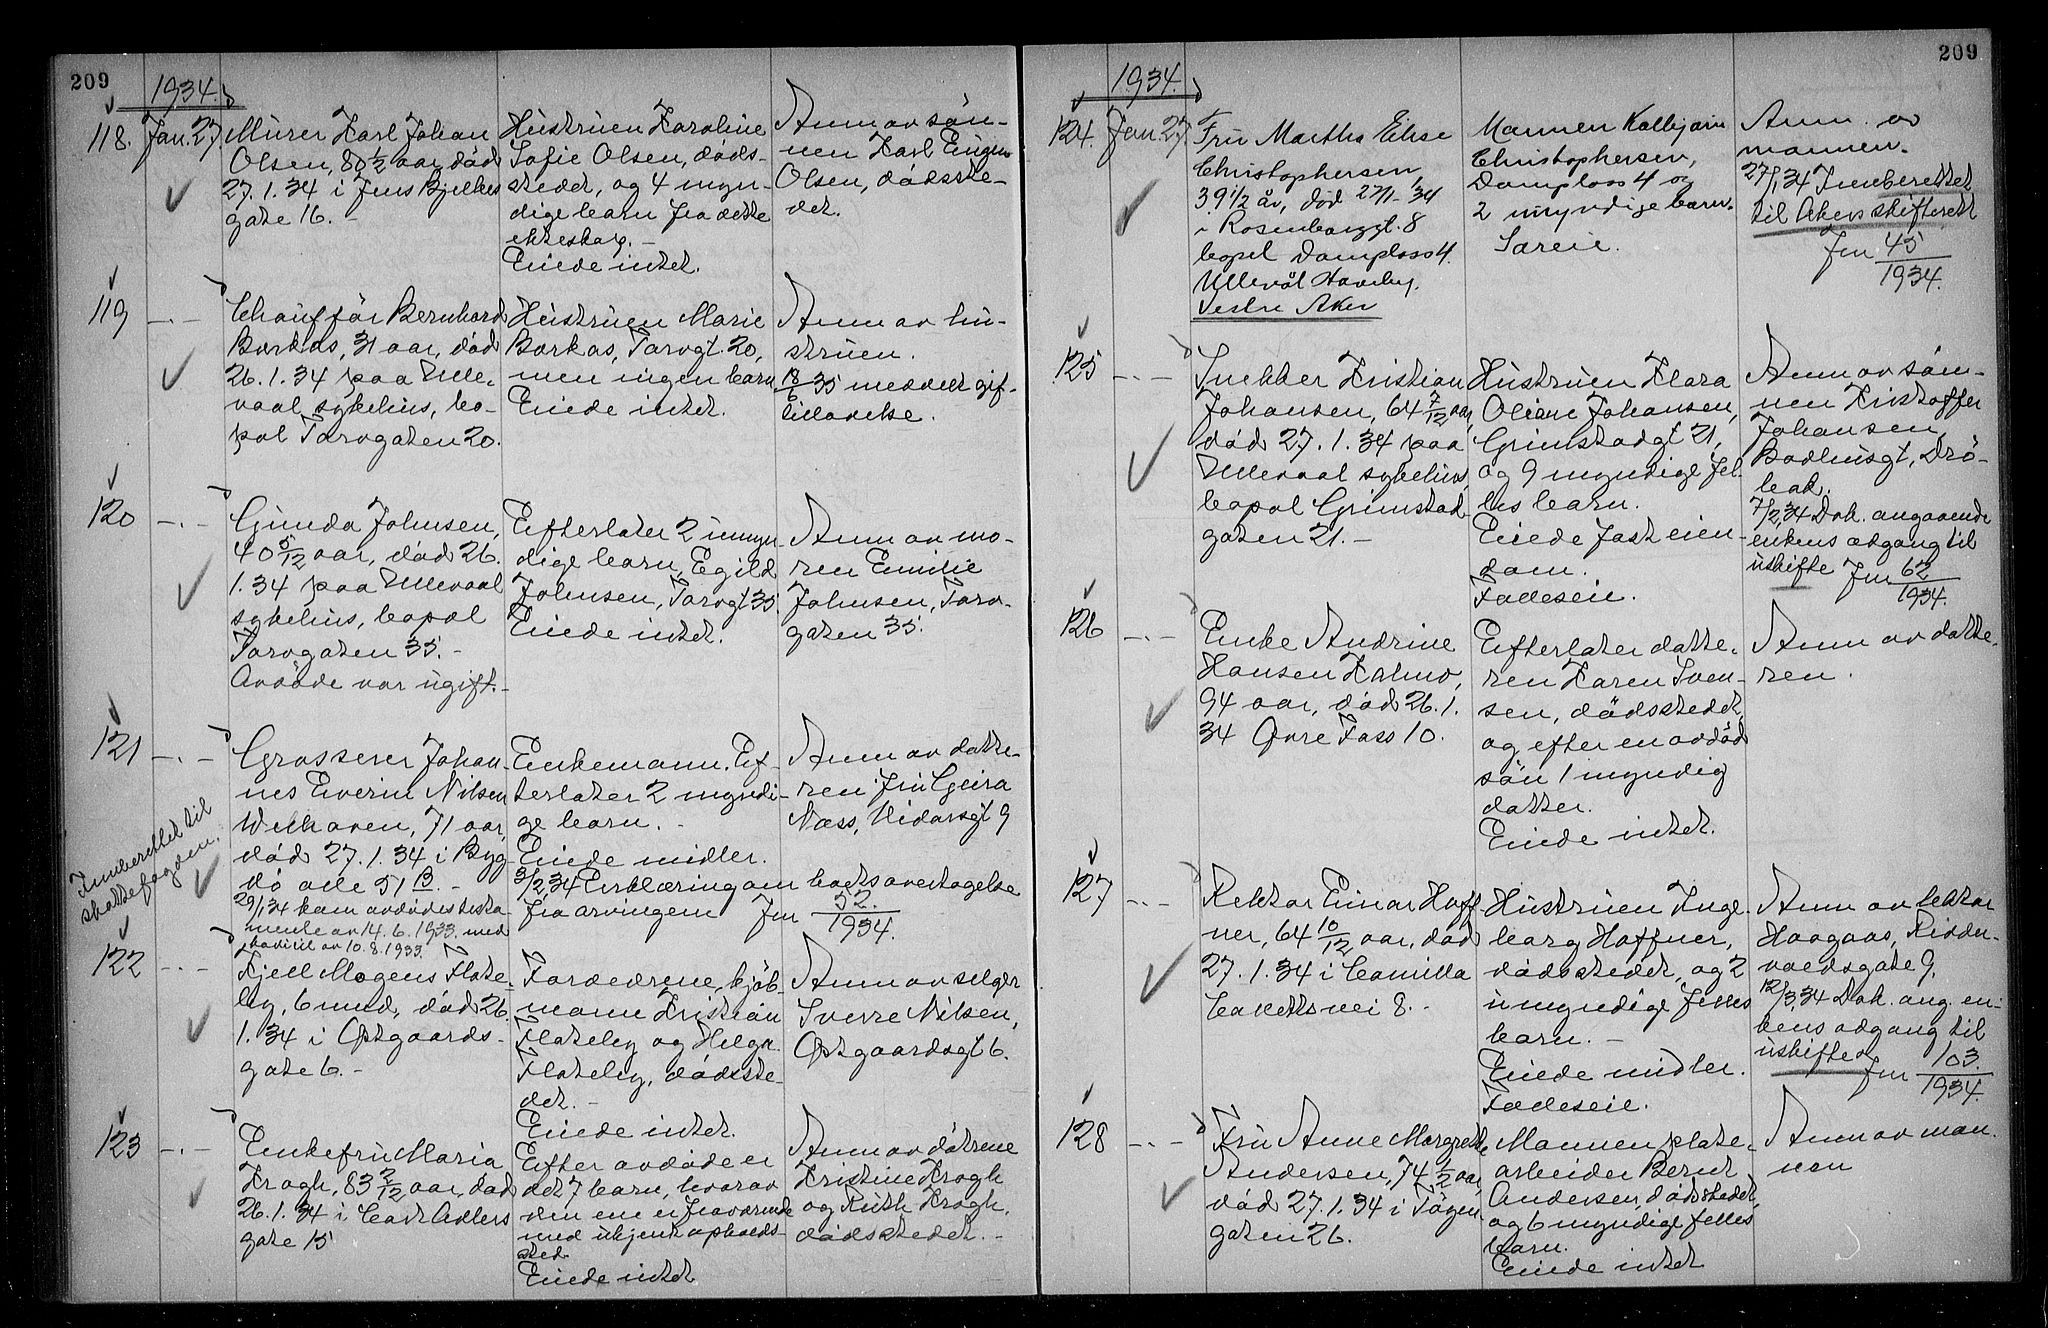 209
1934.
118. Jan. 27.
Murer Karl Johan
Olsen, 80 1/2 aar, död
27.1.34 i Jens Bjelkes
gate 16. -
Hustruen Karoline
Sofie Olsen, döds-
stedet, og 4 myn-
dige barn fra dette
ekteskap. -
Eiede intet.
Anm. av søn-
nen Karl Eugen
Olsen, dödsste-
det.
119 -.-
Chaufför Bernhard
Barkas, 31 aar, död
26.1.34 paa Ulle-
vaal sykehus, bo-
pæl Torvgaten 20.
Hustruen Marie
Barkas, Torvgt. 20,
men ingen barn
Eiede intet.
Anm av hu-
struen.
18/6 35 meddelt gif-
tilladelse.
120 -.-
Gunda Johnsen,
40 5/12 aar, död 26.
1.34 paa Ullevaal
sykehus, bopæl
Torvgaten 35. -
Avdöde var ugift. -
Efterlater 2 umyn-
dige barn, Egild
Johnsen, Torvgt 35.
Eiede intet.
Anm av mo-
ren Emilie
Johnsen, Torv-
gaten 35.
121 -.-
Innberettet til
skattefogden.
Grosserer Johan-
nes Everin Nilsen
Welhaven, 71 aar,
död 27.1.34 i Byg-
dö alle 51 B. -
29/1 34 kom avdødes testa-
mente av 14.6.1933 med
kodisil av 10.8.1933.
Enkemann. Ef-
terlater 2 myndi-
ge barn. -
Eiede midler.
3/2 34 Erklæring om boets overtagelse
fra arvingene Jnr 52./1934.
Anm av datte-
ren fru Geira
Næss, Nidarsgt 9
122 -.-
Kjell Mogens Flate-
by, 6 mnd, död 26.
1.34 i Østgaards-
gate 6. -
Foreldrene, kjöb-
mann Kristian
Flateby og Helga
Flateby, dödsste-
det. -
Eiede intet.
Anm av selger
Sverre Nilsen,
Østgaardsgt 6.
123 -.-
Enkefru Maria
Krogh, 83 2/12 aar, död
26.1.34 i Cort Adlers
gate 15
Efter avdöde er
det 7 barn, hvorav
den ene er fraværende
med ukjent opholds-
sted.
Eiede intet
Anm av dötrene
Kristine Krogh
og Ruth Krogh,
dödsstedet. -
209
1934.
124. Jan. 27.
Fru Martha Elise
Christophersen,
39 1/2 år, död 27/1-34
i Rosenborggt. 8
bopel Damploss 4.
Ullevål Haveby.
Vestre Aker
Mannen Kolbjørn
Christophersen,
Damploss 4 og
2 umyndige barn.
Særeie.
Anm. av
mannen.
27/1 34 Innberettet
til Akers skifterett
Jnr 45/1934.
125 -.-
Snekker Kristian
Johansen, 64 7/12 aar,
död 27.1.34 paa
Ullevaal sykehus,
bopæl Grimstad
gaten 21. -
Hustruen Klara
Oliane Johansen,
Grimstadgt 21,
og 9 myndige fel-
les barn.
Eiede fast eien-
dom.
Fælleseie.
Anm av søn-
nen Kristoffer
Johansen,
Badhusgt, Drö-
bak.
7/2 34 Dok. angaaende
enkens adgang til
uskifte Jnr 62/1934.
126 -.-
Enke Andrine
Hansen Kalmo,
94 aar, död 26.1.
34 Øvre Foss 10.
Efterlater datte-
ren Karen Sven-
sen, dödsstedet,
og efter en avdöd
sön 1 myndig
datter.
Eiede intet.
Anm av datte-
ren.
127 -.-
Rektor Einar Hoff-
ner, 64 10/12 aar, död
27.1.34 i Camilla
Colletts vei 8. -
Hustruen Inge-
borg Hoffner,
dödsstedet, og 2
umyndige felles
barn. -
Eiede midler.
Fælleseie.
Anm av lektor
Haagaas, Ridder-
voldsgate 9.
12/3 34 Dok. ang. en-
kens adgang til
uskifte Jnr 103./1934.
128 -.-
Fru Anne Margrethe
Andersen, 74 1/2 aar,
död 27.1.34 i Töyen
gaten 26.
Mannen plate-
arbeider Bernt
Andersen, dödsstedet,
og 6 myndige felles
barn.
Eiede intet
Anm av man-
nen